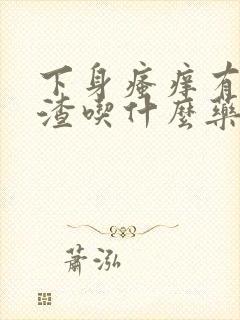 下身瘙痒有
渣喫什麽藥
蕭泓